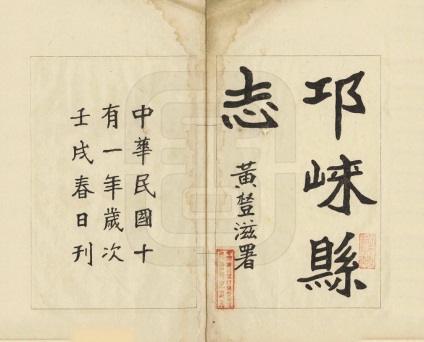 邛崍縣
志
黃㽅滋署
中華民國十
有一年歲次
壬戌春日刊